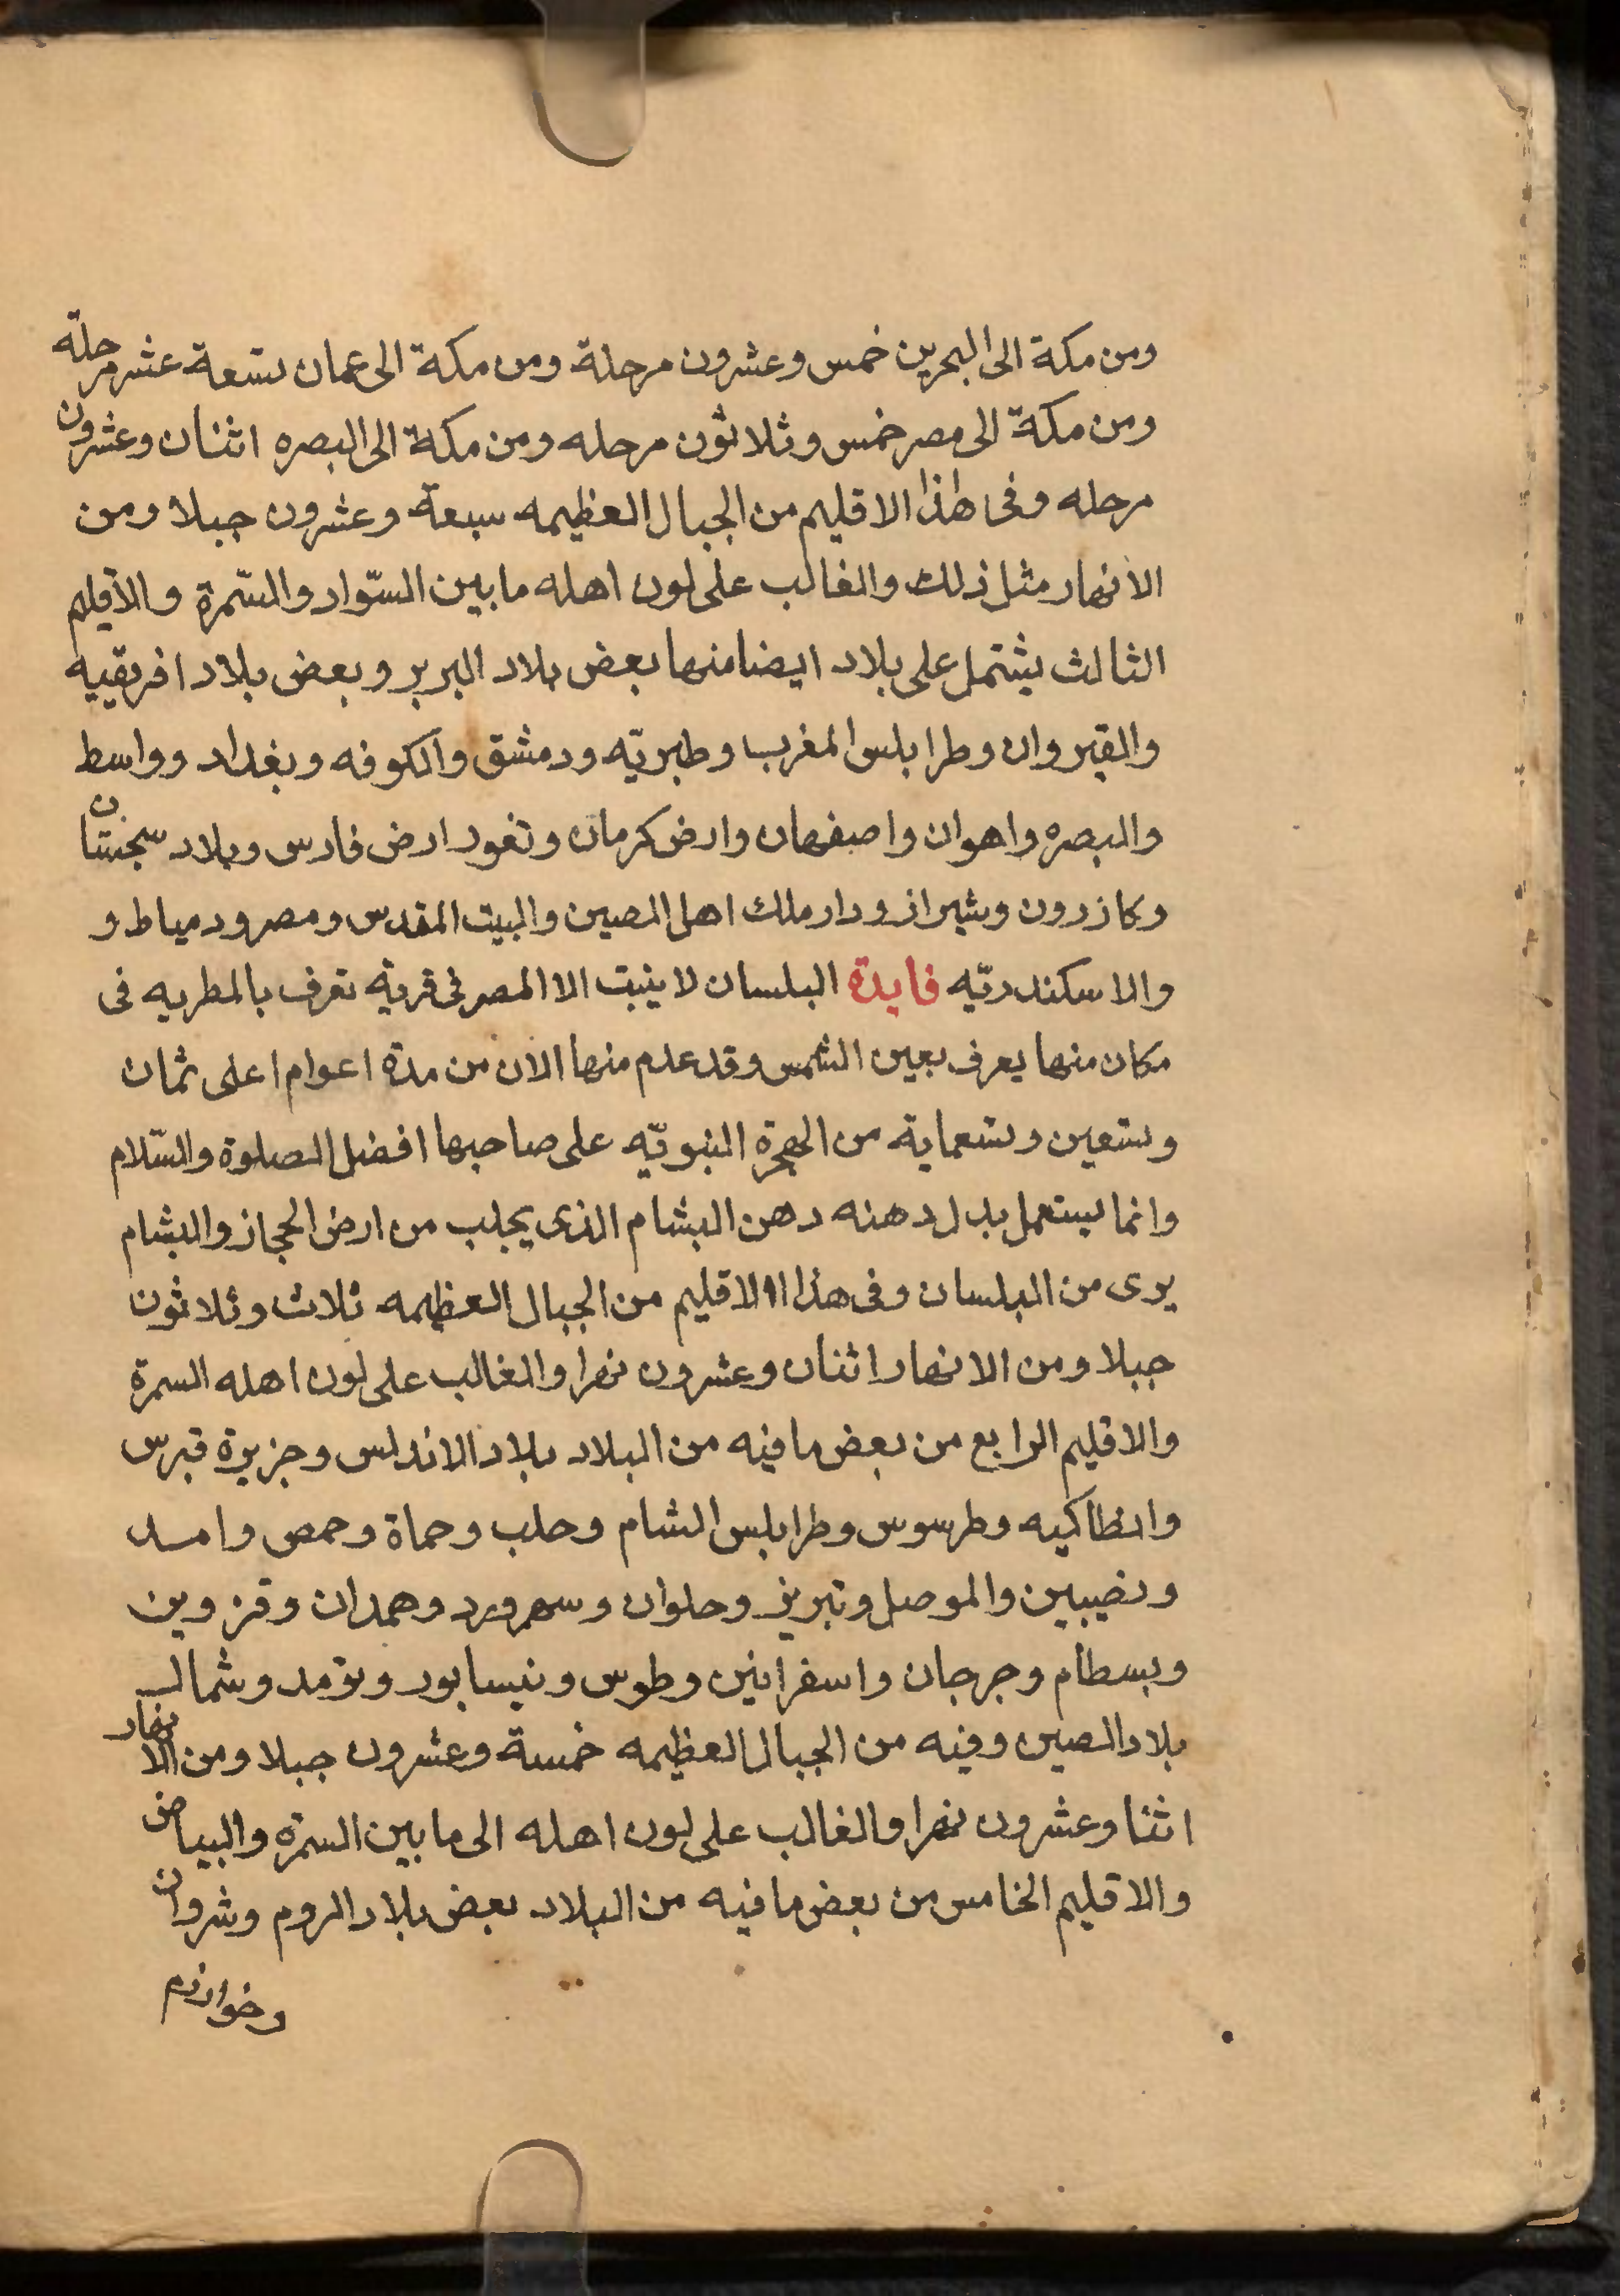 ومن مكة الى البحرين خمس وعشرون مرحلة ومن مكة الى عمان تسعة عشر مرحلة
ومن مكة الى مصر خمس وثلاثون مرحله ومن مكة الى البصره اثنان وعشرون
مرحله وفى هذا الاقليم من الجبال العظيمه سبعة وعشرون جبلا ومن
الانهار مثل ذلك والغالب على لون اهله ما بين السّواد والسّمرة والاقليم
الثالث يشتمل على بلاد ايضا منها بعض بلاد البربر وبعض بلاد افريقيه
والقيروان وطرابلس المغرب وطبريّه ودمشق والكوفه وبغداد وواسط
والبصره واهوان واصفهان وارض كرمان وتغور ارض فارس وبلاد سجستان
وكازرون وشيراز ودار ملك اهل الصين والبيت المقدس ومصر ودمياط و
والاسكندريّه فايدة البلسان لا ينبت الا المصر فى قرية تعرف بالمطريه فى
مكان منها يعرف بعين الشمس وقد عدم منها الان من مدة اعوام اعلى ثمان
وتسعين وتسعماية من الهجرة النبويّه على صاحبها افضل الصلوة والسّلام
وانما يستعمل بدل دهنه دهن البشام الذى يجلب من ارض الحجاز والبشام
يرى من البلسان وفى هذا الاقليم من الجبال العظيمه ثلاث وثلاثون
جبلا ومن الانهار اثنان وعشرون نهرا والغالب على لون اهله السمرة
والاقليم الرابع من بعض ما فيه من البلاد بلاد الاندلس وجزيرة قبرس
وانطاكيه وطرسوس وطرابلس الشام وحلب وحماة وحمص وامد
ونصيبين والموصل وتبريز وحلوان وسهرورد وهمدان وقزوين
وبسطام وجرجان واسفرانين وطوس ونيسابور وتومد وشمال
بلاد الصين وفيه من الجبال العظيمه خمسة وعشرون جبلا ومن الانهار
اثنا وعشرون نهرا والغالب على لون اهله الى ما بين السمرة والبياض
والاقليم الخامس من بعض ما فيه من البلاد بعض بلاد الروم وشروان
وخوارزم